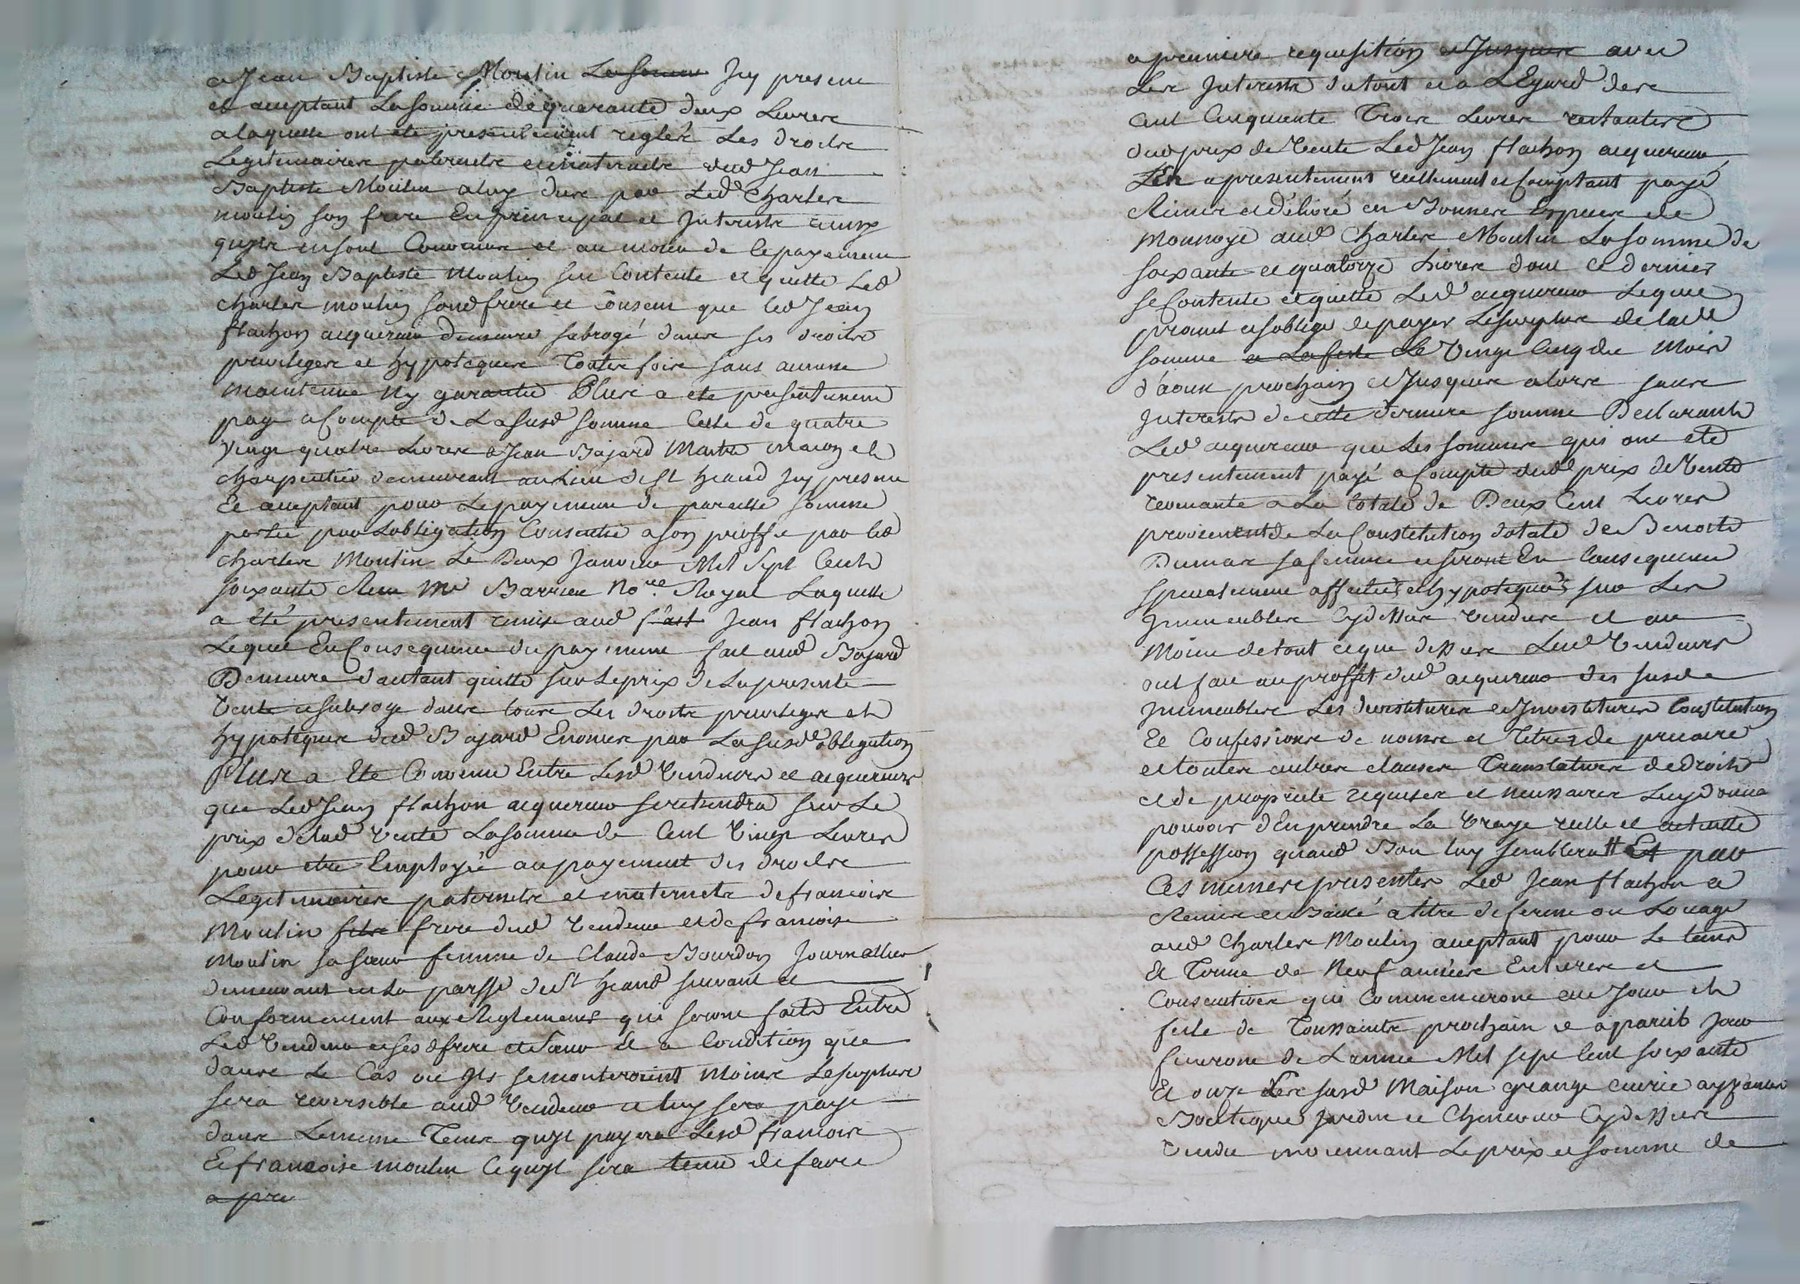 a Jean Baptiste Moulin La somme Icy present
et acceptant La somme de quarante deux Livres
a laquelle ont ete presentement reglés Les droits
Legitimaires paternels et maternels dud Jean
Baptiste Moulin a luy dus par Led Charles
moulin son frere En principal et Interests ainsy
quils en sont Convenus et au moien de ce payement
Led Jean Baptiste Moulin se Contente et quitte Led
Charles moulin sond frere et Consent que led Jean
flachon acquereur demeure subrogé dans ses droits
privileges et hypoteques Toutes fois sans aucune
maintenue Ny garantie Plus a ete presentement
payé a Compte de La susd somme Celle de quatre
vingt quatre Livres a Jean Bajard Maitre macon et
charpentier demeurant au Lieu de St heand Icy present
Et acceptant pour Le payement de pareille somme
portée par Lobligation Consentie a son proffit par led
Charles Moulin Le Deux Janvier Mil Sept Cent
soixante Recu Me Barrieu Nore Royal Laquelle
a été presentement remise aud Jean flachon
Lequel En Consequence du payement fait aud Bajard
Demeure d'autant quitte sur Le prix de La presente
Vente et subrogé dans tous Les droits privileges et
hypoteques dud Bajard Enoncés par La susd obligation
Plus a Eté Convenu Entre Lesd Vendeurs et acquereurs
que Led Jean flachon acquereur se retiendra sur Le
prix de lad Vente La somme de Cent Vingt Livres
pour etre Employée au payement des droits
Legitimaires paternels et maternels de francois
Moulin fils frere dud Vendeur et de francoise
Moulin sa sœur femme de Claude Bourdon Journallier
demeurant en La parsse de St heand suivant et
Conformement aux Reglements qui seront faits Entre
Led Vendeur et ses d frere et sœur Et a Condition que
dans Le Cas ou Ils se monteroient Moins Le surplus
sera reversible aud Vendeur et luy sera payé
dans Le meme Tems quil payera Lesd francois
Et francoise moulin Ce quil sera tenu de faire
a pre
a premiere requisition et Jusques avec
Les Interests du tout et a L'Egard des
Cent Cinquante Trois Livres restantes
dud prix de Vente Led Jean flachon acquereur
Les a presentement reellement et Comptant payé
Réimis et délivré en Bonnes Especes de
Monnoye aud Charles Moulin La somme de
soixante et quatorze Livres dont Ce dernier
se Contente et quitte Led acquereur Lequel
promet et s'oblige de payer Le surplus de lad
somme a La feste Le Vingt Cinq du Mois
d'aoust prochain et Jusques alors sans
Interests de cette derniere somme Declarant
Led acquereur que Les sommes qui ont eté
presentement payé a Compte dud prix de Vente
revenante a La totale de Deux Cent Livres
proviennent de La Constitution dotale de Benoite
Dumas sa femme et seront En Consequence
speciallement affectées et hypotequées sur Les
Immeubles Cy dessus Vendus et au
Moien de tout ce que dessus Lesd Vendeurs
ont fait au proffit dud acquereur des susd
Immeubles Les devestitures et Investitures Constitution
Et Confessions de nomme et Titres de precaire
et toutes autres clauses Translatives de droits
et de proprieté requises et necessaires Luy donne
pouvoir d'En prendre La Vraye reelle et actuelle
possession quand Bon luy semblera Et par
Ces memes presentes Led Jean flachon a
Remis et Baillé a titre de ferme ou Louage
aud Charles Moulin acceptant pour Le tems
Et Terme de Neuf années Entieres et
Consecutives qui Commenceront au Jour et
feste de Toussaints prochain et a pareil Jour
finiront de L'année Mil sept Cent soixante
Et onze Les susd Maison grange ecurie
Boutique Jardin et Chenevier Cy dessus
Vendu moiennant Le prix et somme de